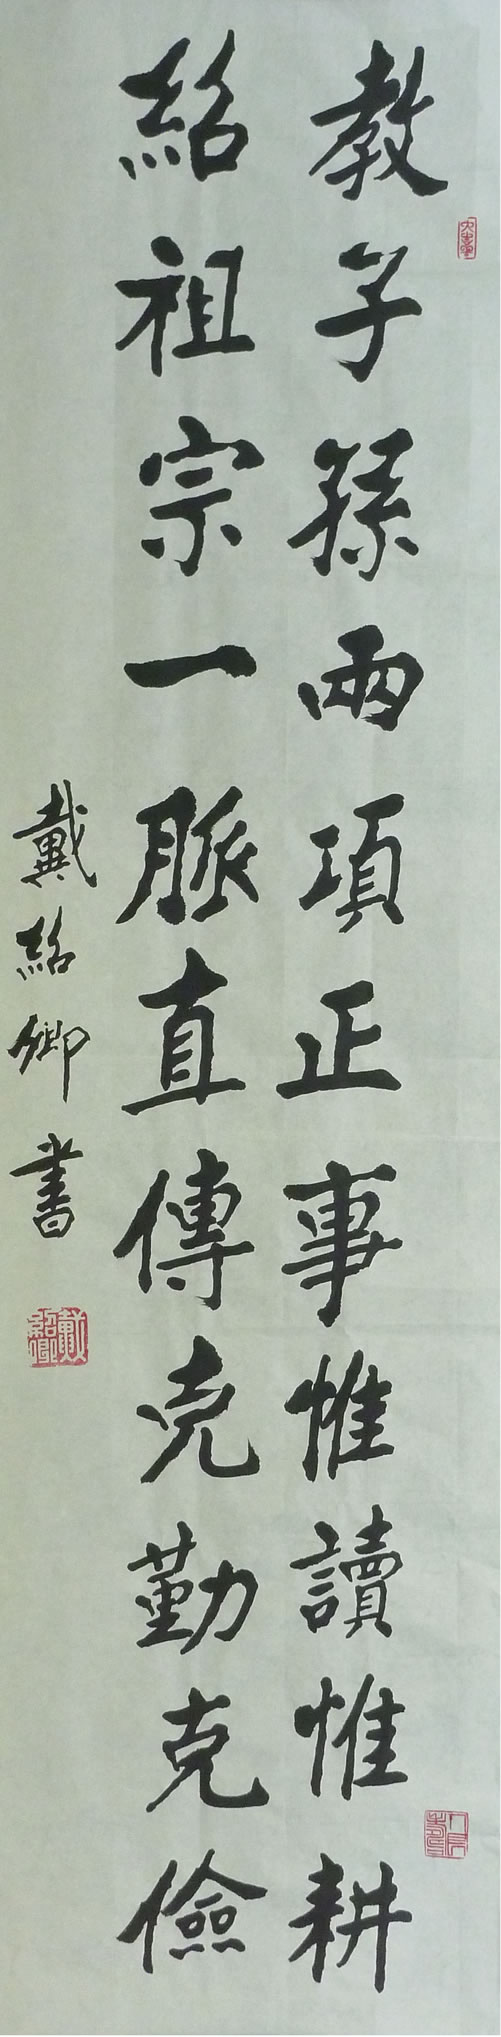 教子孫兩項正事惟讀惟耕
紹祖宗一脈直傳克勤克儉
戴紹卿書
戴紹卿